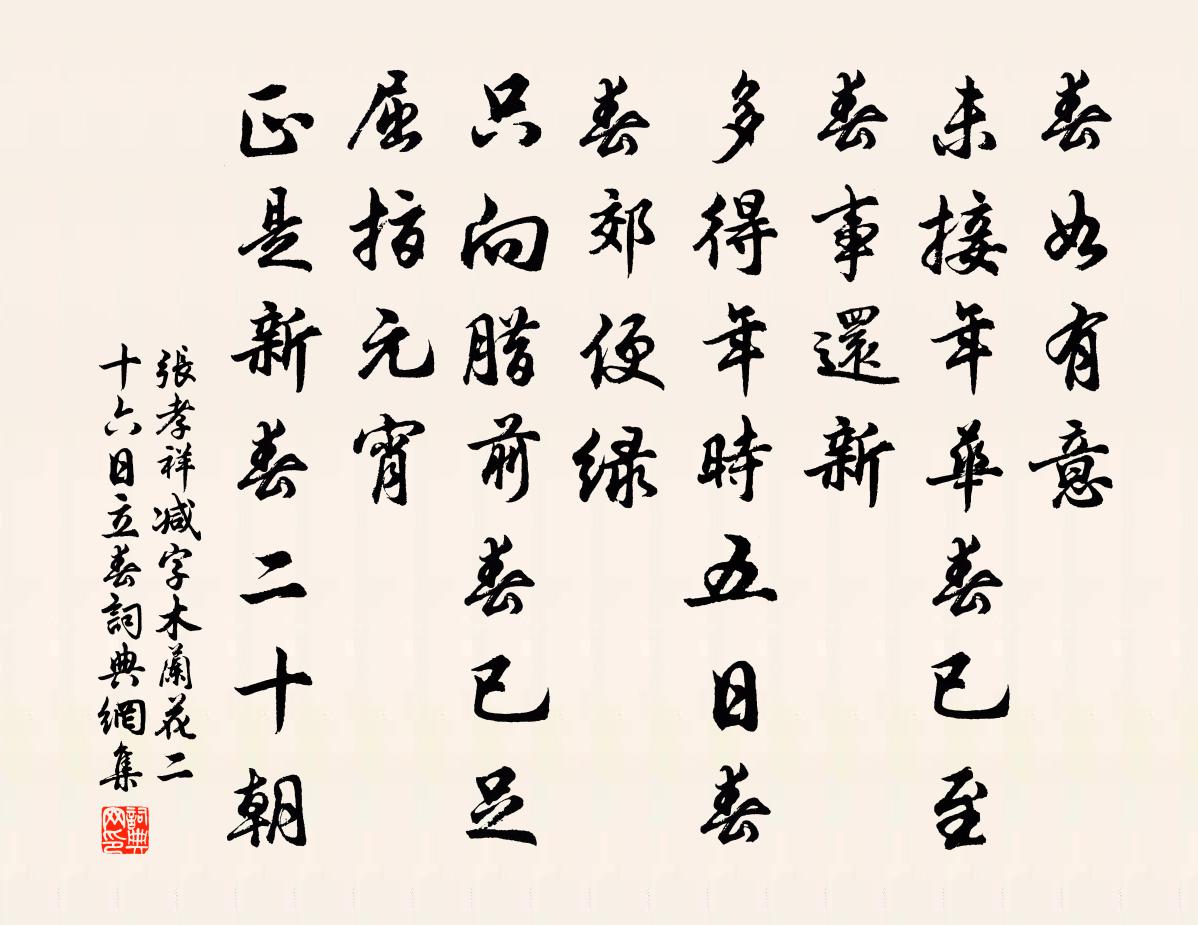 春如有意
未接年華春已至
春事還新
多得年時五日春
春郊便緑
只向腊前春已足
屈指元宵
正是新春二十朝
張孝祥减字木蘭花二
十六日立春詞典網集
詞典
网印